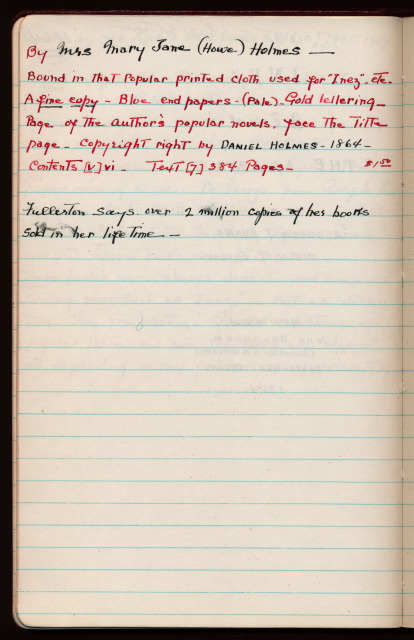 By Mrs Mary Jane (Howe) Holmes —
Bound in that Popular printed cloth used for "Inez", etc.
A fine copy - Blue end papers - (Pale) - Gold lettering -
Page of the author's popular novels, face the Title
page - Copyright right by DANIEL HOLMES - 1864 -
Contents [v] vi - Text [7] 384 Pages - $1.50
Fullerton says over 2 million copies of her books
sold in her life time —